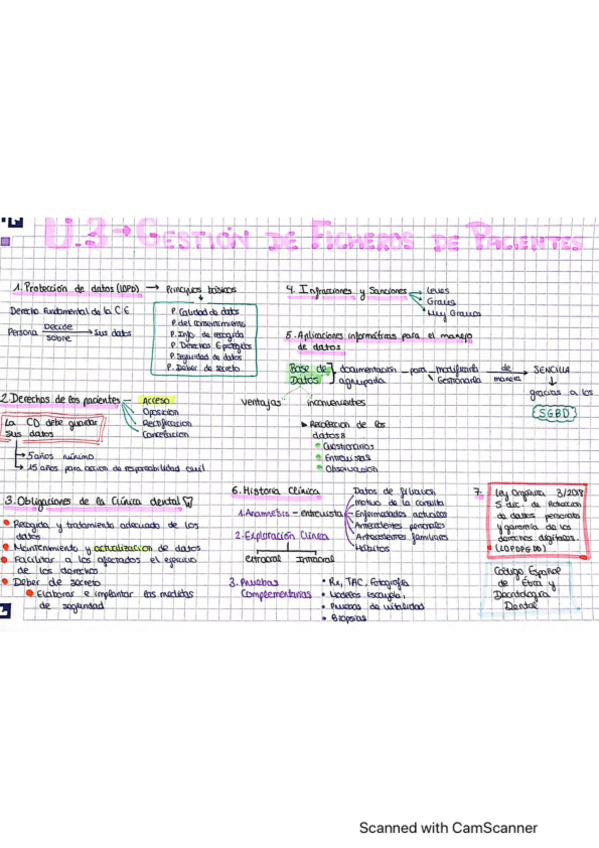 U.3→GESTIÓN DE FICHEROS DE PACIENTES
1. Protección de datos (LOPD) → Principios básicos
Derecho Fundamental de la CE
Persona Decide sobre → sus datos
P. Calidad de datos
P. del consentimiento
P. Info de recogida
P. Derechos
P. Seguridad de datos
P. Deber de secreto
2. Derechos de los pacientes
Acceso
Oposición
Rectificación
Cancelación
La CD debe guardar
sus datos
→ 5 años mínimo
→ 15 años para acción de responsabilidad civil
3. Obligaciones de la Clínica dental
Recogida y tratamiento adecuado de los
datos
Mantenimiento y actualización de datos
Facilitar a los afectados el ejercicio
de los derechos
Deber de secreto
Elaborar e implantar las medidas
de seguridad
4. Infracciones y Sanciones
Leves
Graves
Muy Graves
5. Aplicaciones informáticas para el manejo
de datos
Base de Datos } documentación agrupada – para – modificarla Gestionarla de manera → SENCILLA
gracias a los
SGBD
ventajas inconvenientes
► Recolección de los
datos:
Cuestionarios
Entrevistas
Observación
6. Historia Clínica
1. Anamnesis – entrevista
Datos de filiación
motivo de la consulta
Enfermedades actuales
Antecedentes personales
Antecedentes familiares
Hábitos
2. Exploración Clínica
extraoral Intraoral
3. Pruebas
Complementarias
• Rx, TAC, Fotografía
• Modelos escayola
• Pruebas de vitalidad
• Biopsias
7. Ley Orgánica 3/2018
5 dic. de Protección
de datos personales
y garantía de los
derechos digitales.
(LOPDPGDD)
Código Español
de Ética y
Deontología
Dental
Scanned with CamScanner